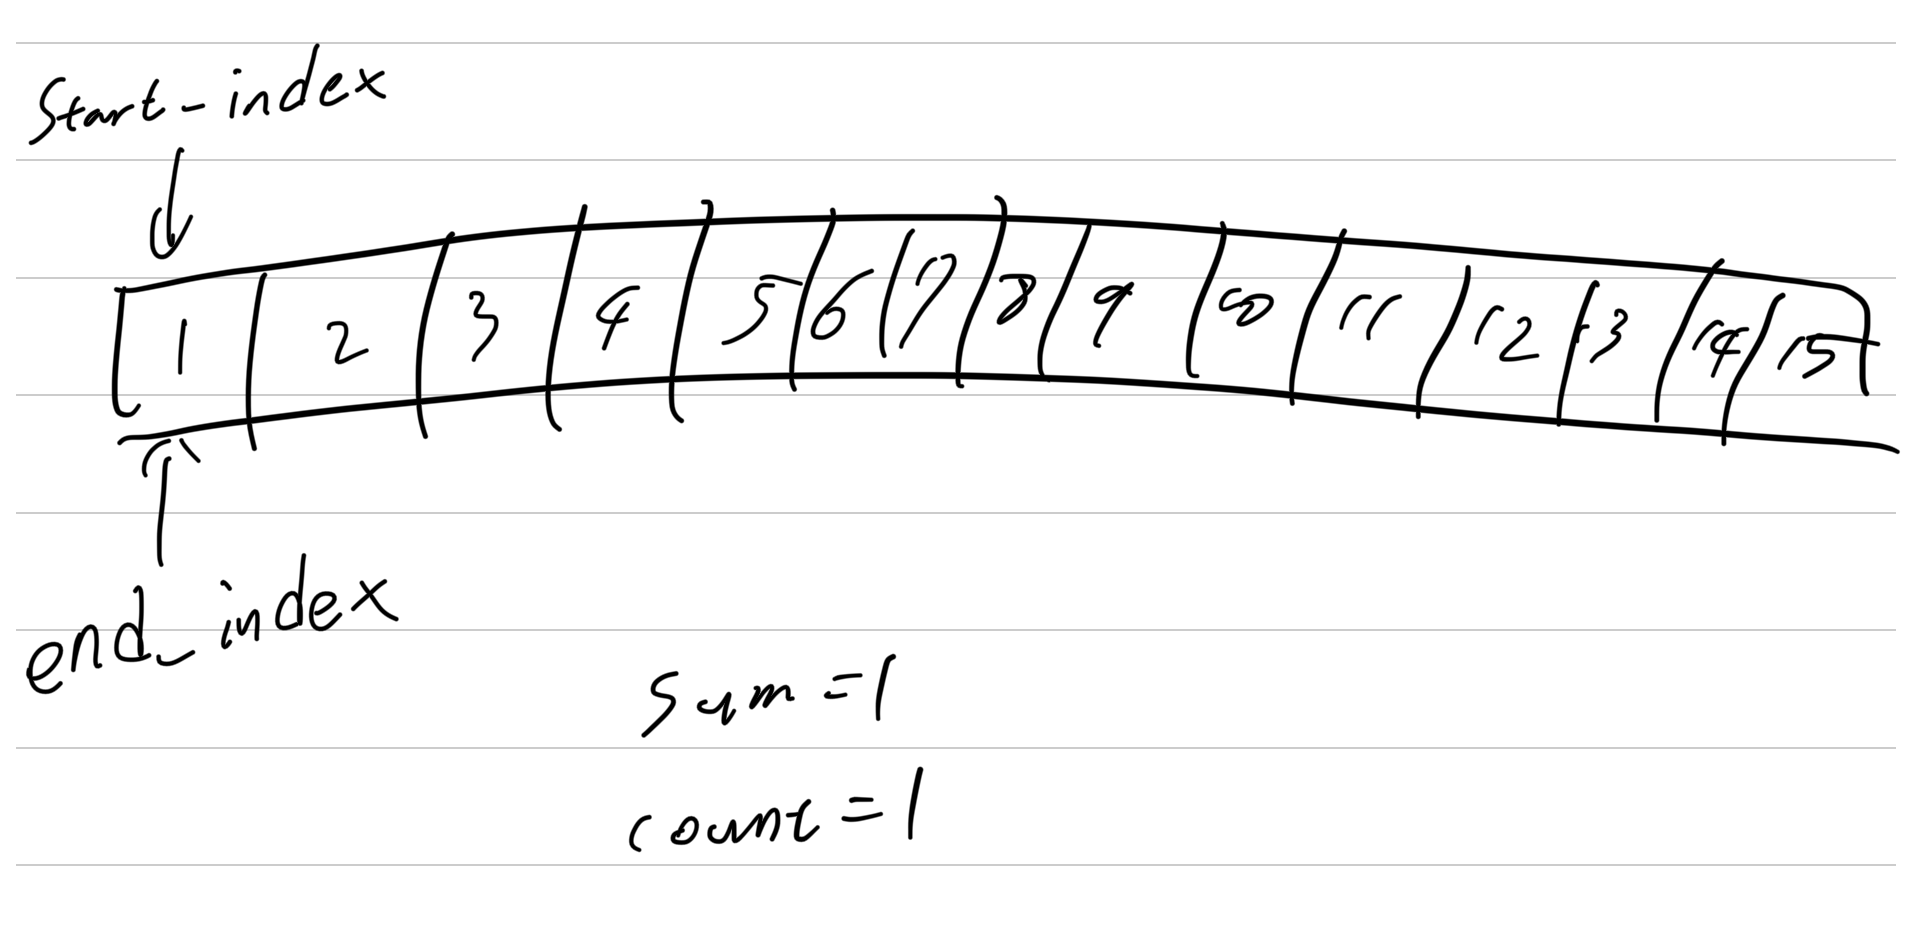 Start_index
1 2 3 4 5 6 7 8 9 10 11 12 13 14 15
end_index
sum = 1
count = 1